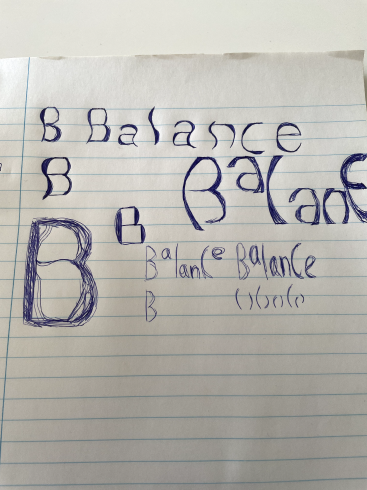 B Balance
B Balanc
B B
Balance Balance
B